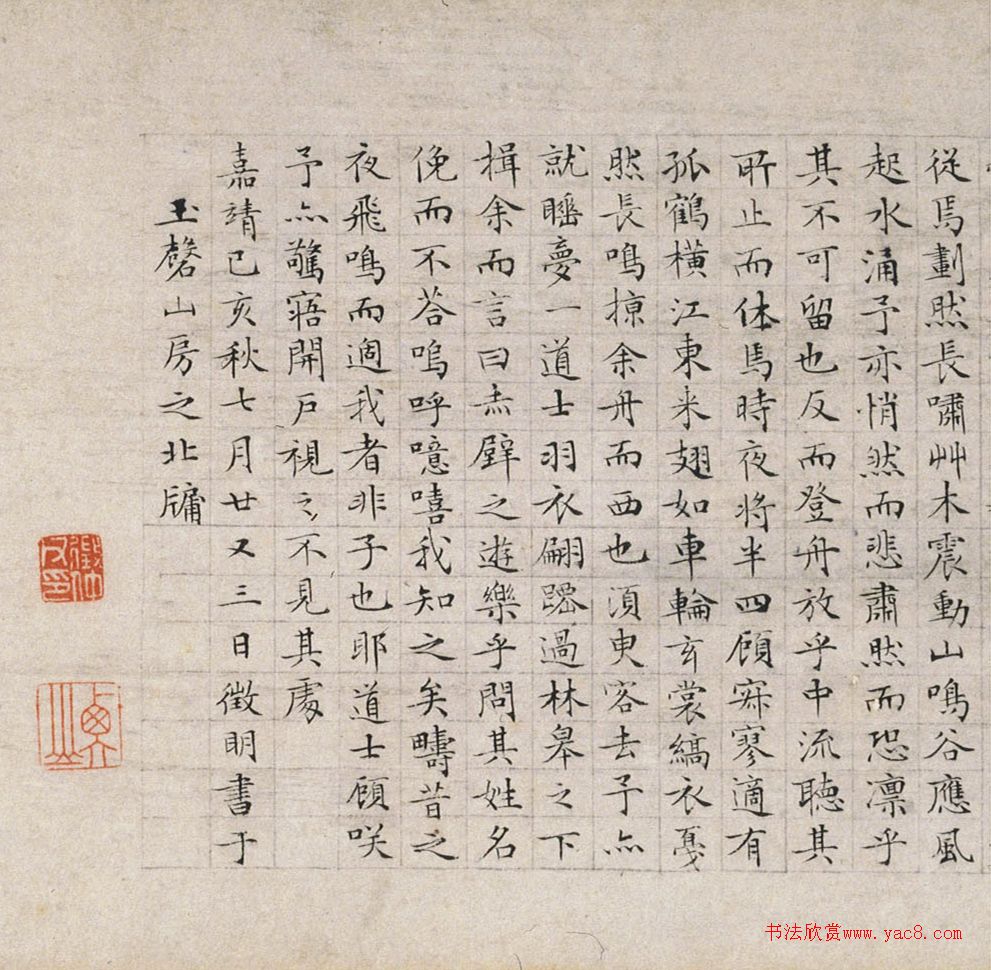 從焉劃然長嘯艸木震動山鳴谷應風
起水涌予亦悄然而悲肅然而恐凛乎
其不可留也反而登舟放乎中流聴其
所止而休焉時夜将半四顧寂寥適有
孤鶴横江東来翅如車輪玄裳縞衣戞
然長鳴掠余舟而西也須臾客去予亦
就睡夢一道士羽衣翩躚過林皋之下
揖余而言曰赤壁之遊樂乎問其姓名
俛而不荅嗚呼噫嘻我知之矣疇昔之
夜飛鳴而過我者非子也耶道士顧咲
予亦驚寤開戶視之不見其處
嘉靖己亥秋七月廿又三日徵明書于
玉磬山房之北牖
徵仲
父印
书法欣赏www.yac8.com